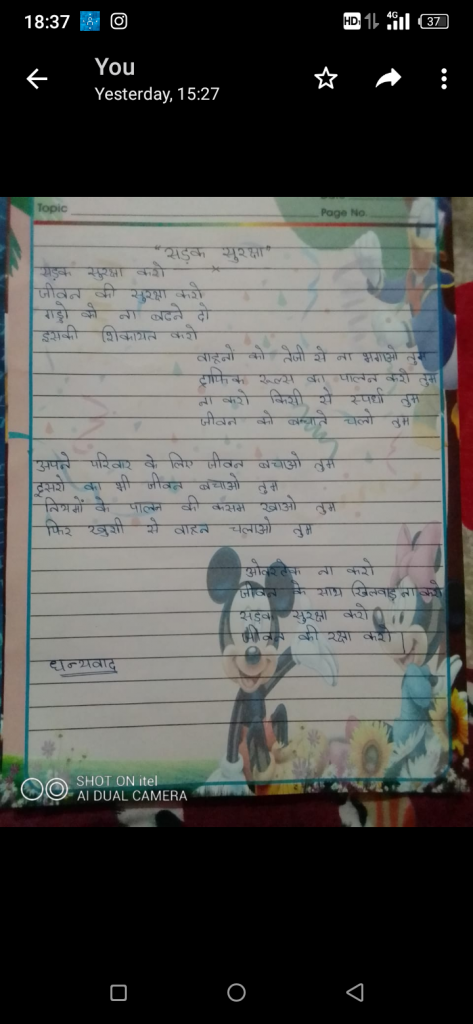 18:37
HD 4G 37
You
Yesterday, 15:27
Topic
Page No.
"सड़क सुरक्षा"
सड़क सुरक्षा करो
जीवन की सुरक्षा करो
गड्डो को ना बढने दो
इसकी शिकायत करो
वाहनो को तेजी से ना भगाओ तुम
ट्राफिक रूल्स का पालन करो तुम
ना करो किसी से स्पर्धा तुम
जीवन को बचाते चलो तुम
अपने परिवार के लिए जीवन बचाओ तुम
दुसरो का भी जीवन बचाओ तुम
नियमों के पालन की कसम खाओ तुम
फिर खुशी से वाहन चलाओ तुम
ओवरटेक ना करो
जीवन के साथ खिलवाड़ ना करो
सड़क सुरक्षा करो
जीवन की रक्षा करो |
धन्यवाद
SHOT ON itel
AI DUAL CAMERA